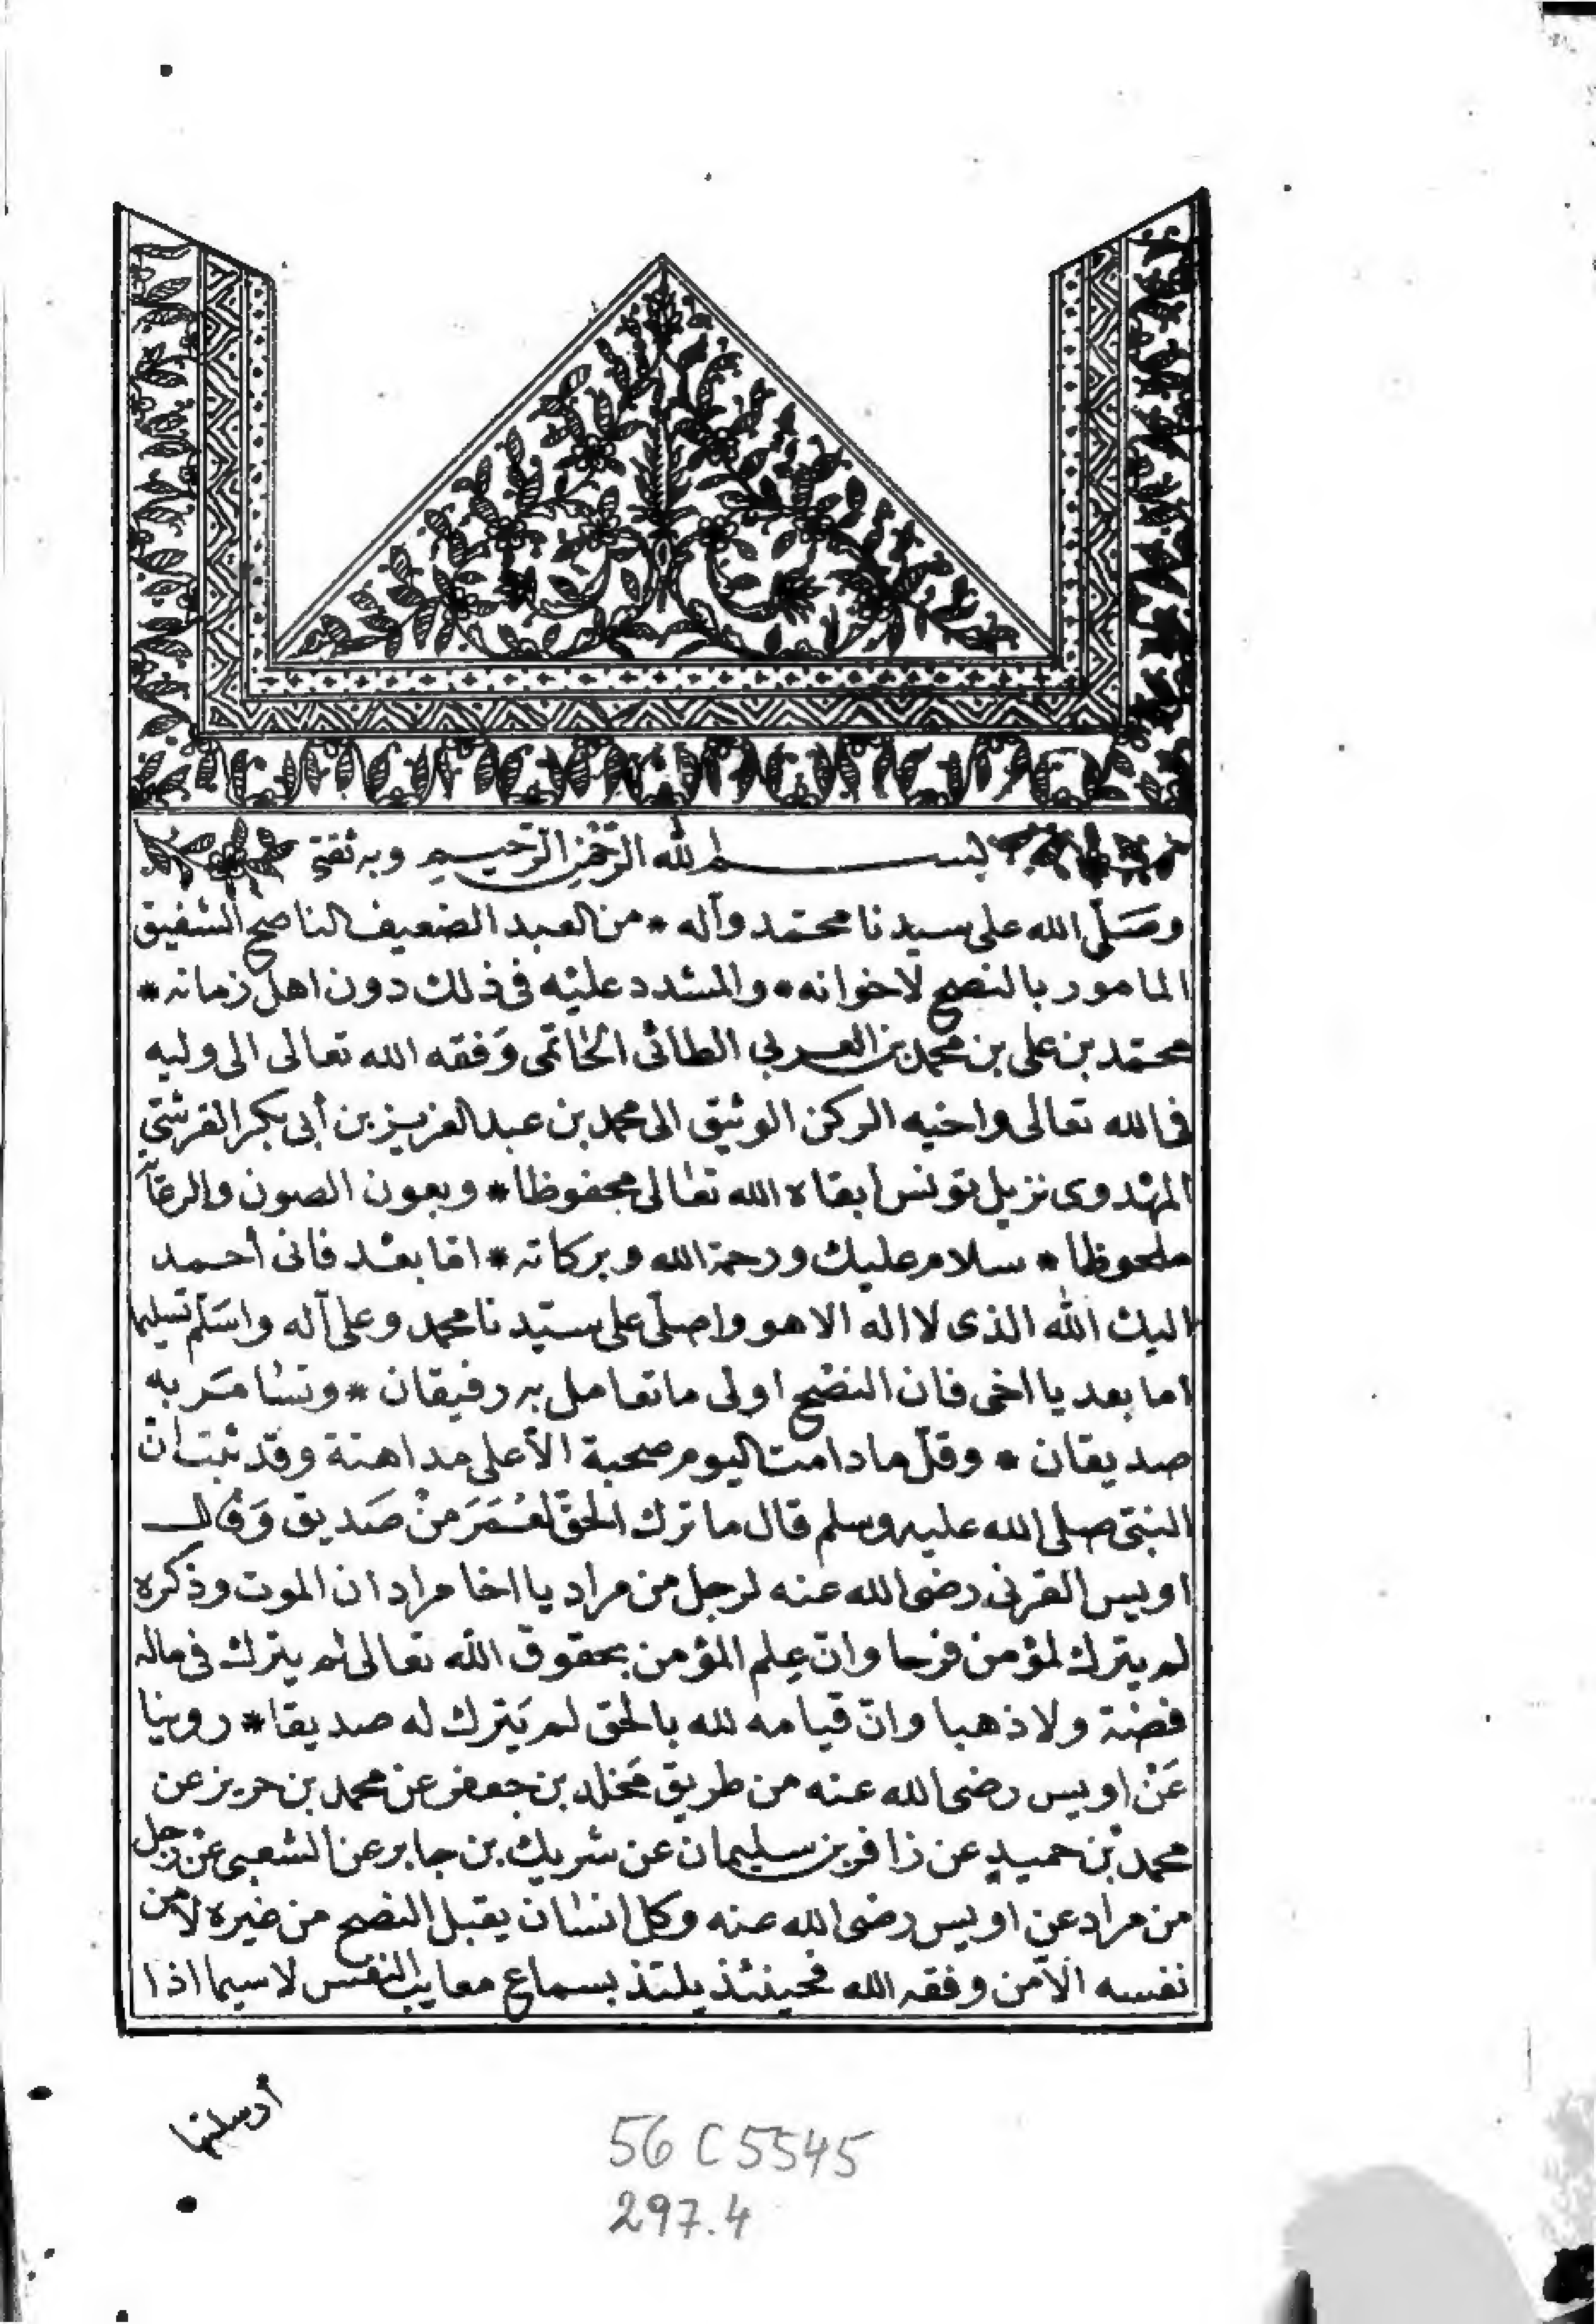 بسم الله الرحمن الرحيم وبه ثقتي
وصَلّى الله على سيدنا محمّد وآله * من العبد الضعيف الناصح الشفيق
المامور بالنصح لاخوانه * والمشدد عليْه فى ذلك دون اهل زمانه *
محمّد بن على بن محمد بن العربي الطائى الخاتمى وَفقه الله تعالى الى وليه
فى الله تعالى واخيه الركن الوثيق الى محمد بن عبد العزيز بن أبى بكر القرشىّ
المهْدوى نزيل تونس أبقاه الله تعالى محفوظا * وبعون الصون والرعَاية
ملحوظا * سلام عليك ورحمة الله وبركاته * امّا بعْد فانى أحمد
اليك الله الذى لا اله الا هو واصلّى على سيّدنا محمد وعلى آله واسَلّم تسليما
اما بعد يا اخى فان النصْح اولى ما تعامل به رفيقان * وتسَامَر به
صديقان * وقلّ ما دامت اليوم صحبة الأعلى مداهنة وقد ثبت انّ
النبىّ صلى الله عليه وسلم قال ما ترك الحقّ لعُمَرَ مِنْ صَديق وَقال
اويس القرنى رضى الله عنه لرجل من مراد يا اخا مراد ان الموت وذكره
لم يترك لمؤمن فرحا وانّ عِلم المؤمن بحقوق الله تعالى لم يترك فى ماله
فضة ولا ذهبا وانّ قيامه لله بالحق لم يَترك له صديقا * روينا
عَنْ اويس رضى الله عنه من طريق مَخلد بن جعفر عن محمد بن حريز عن
محمد بْن حميدٍ عن زافر بن سليمان عن شريك بن جابر عن الشعبى عن رجل
من مراد عن اويس رضى الله عنه وكل انسَان يقبل النصح من غيره لا من
نفسه الّا من وفقه الله فحينئذ يلتذ بسماع معايب النفس لا سيما اذا
أرسلتها
56 C 5545
297.4